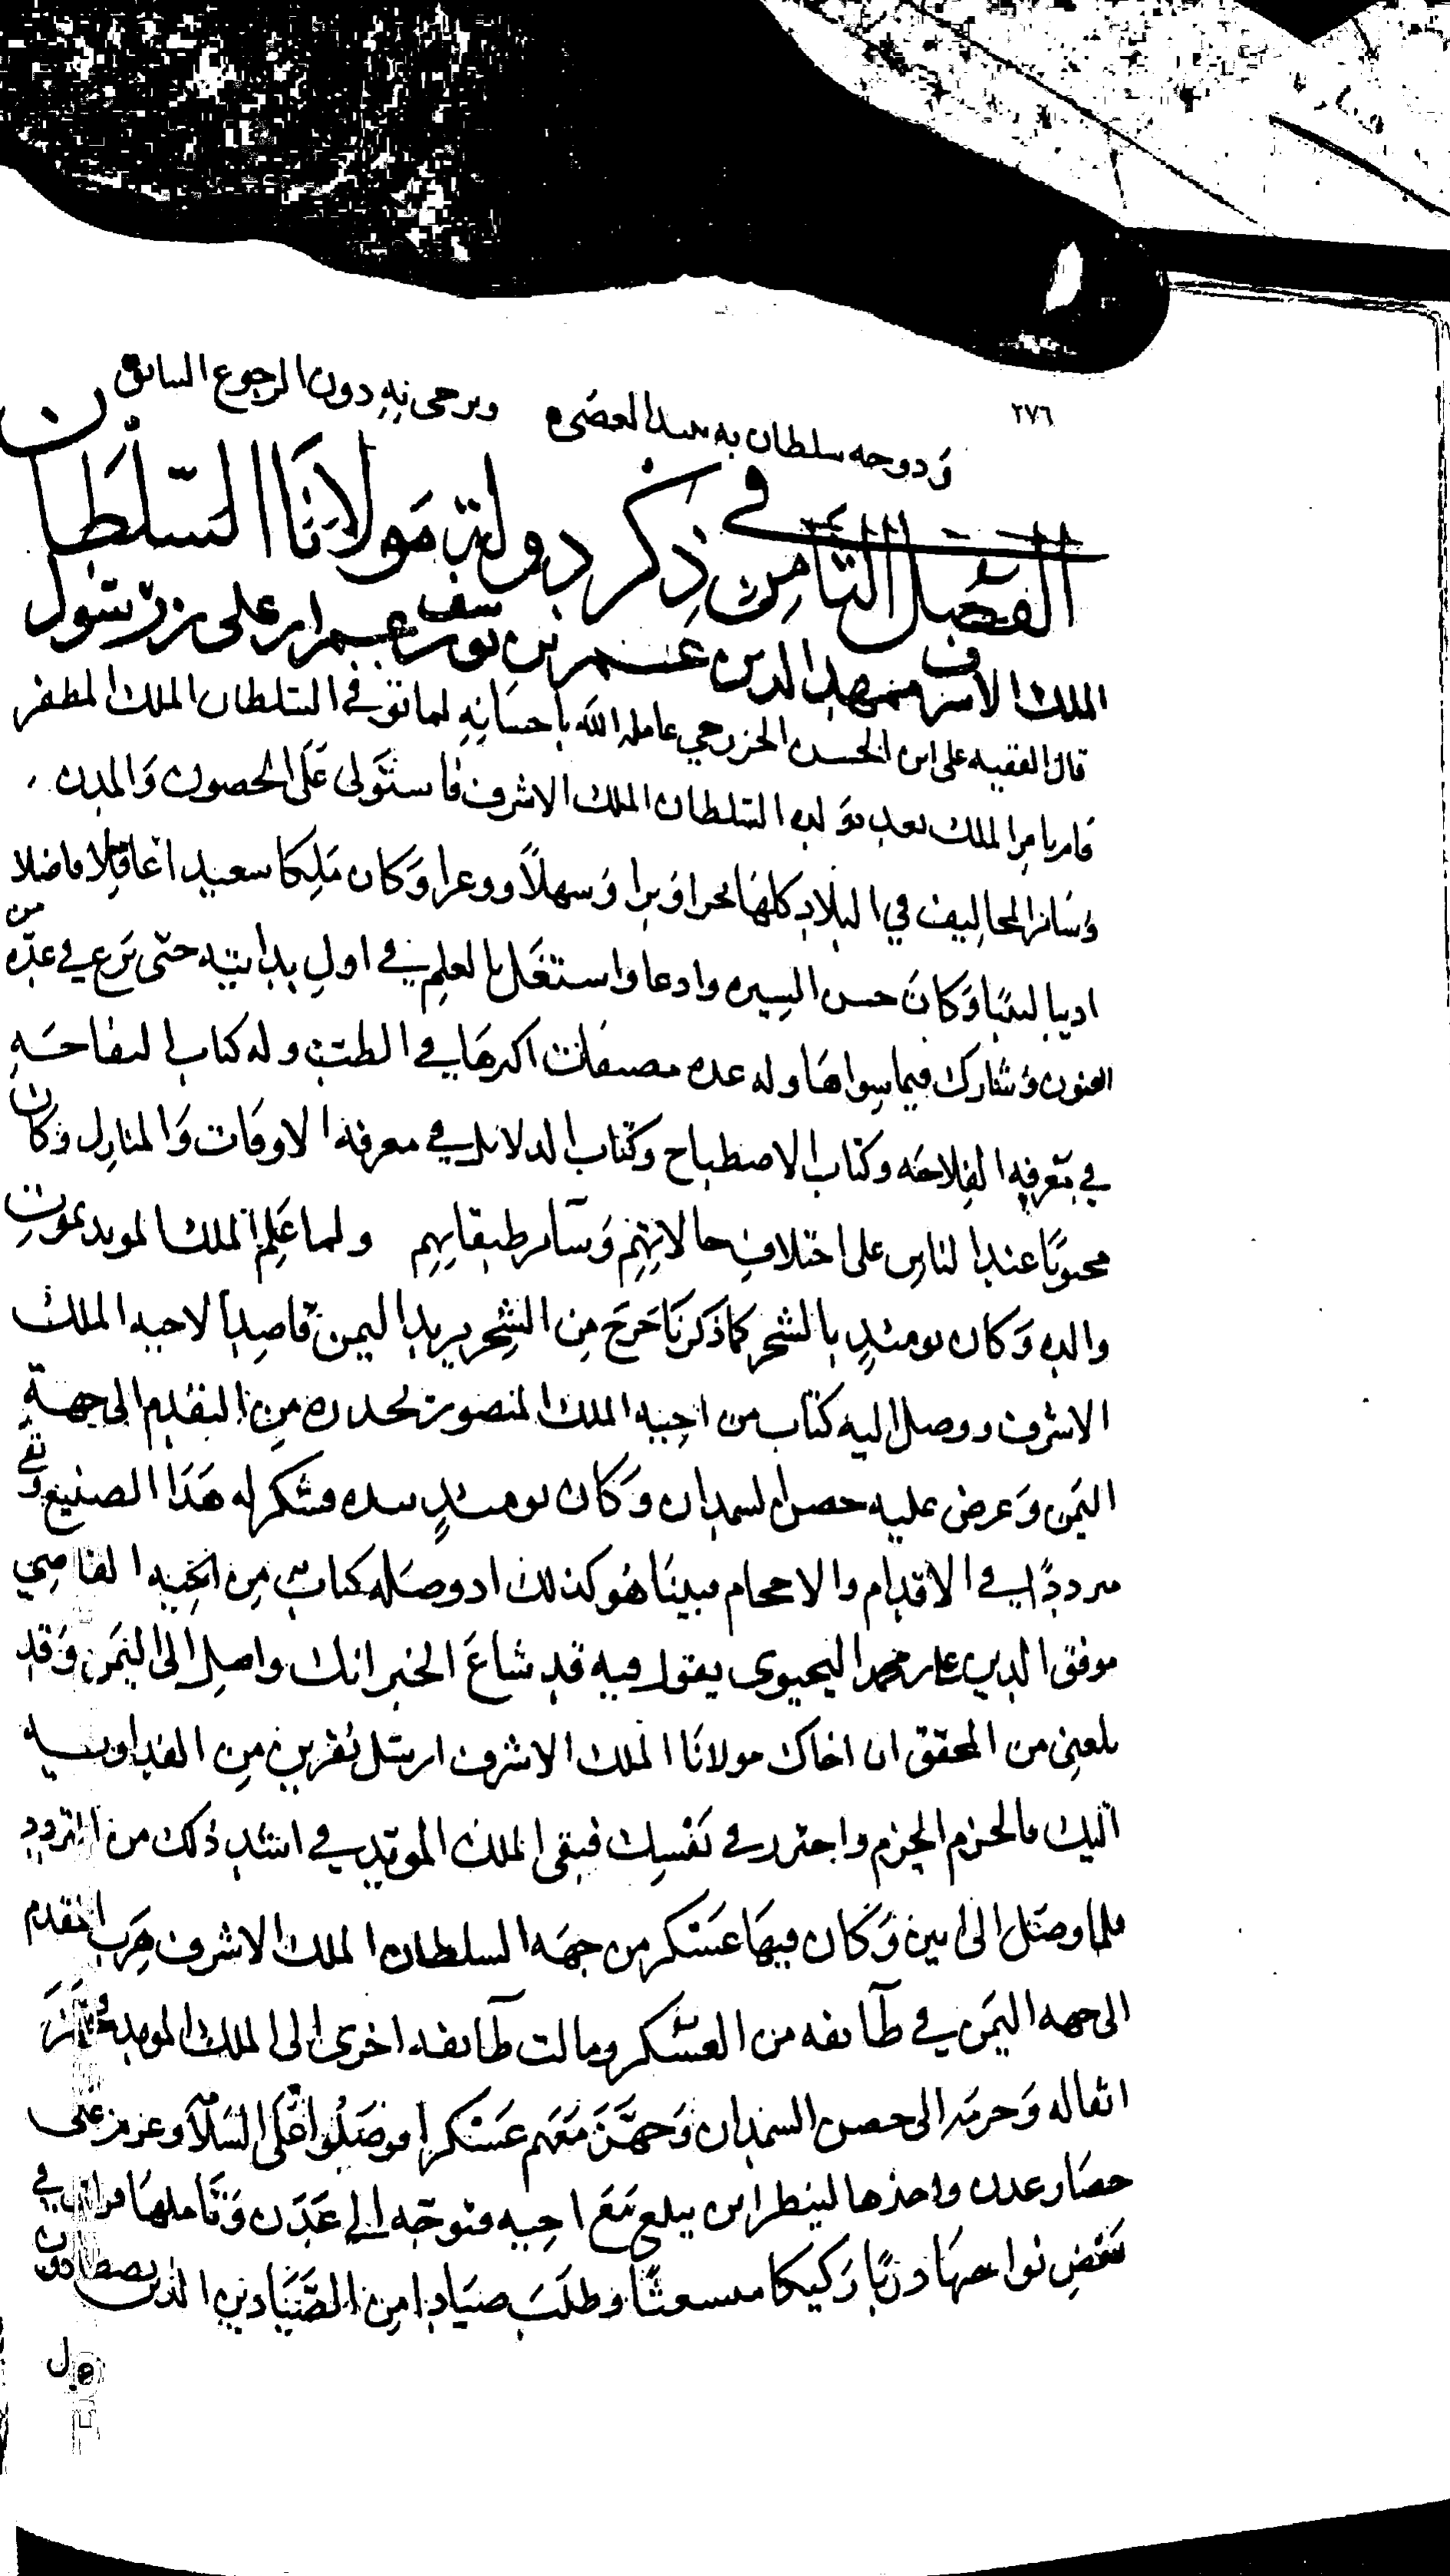 ٢٧٦
ودوحه سلطان به العضى ويرحى به دون الرجوع السابق
الفصل الثامن في ذكر دولة مولانا السلطان
الملك الاشرف ممهد الدين عمر بن يوسف بن عمر ابن على بن رسول
قال الفقيه على ابن الحسن الخزرجي عامله الله باحسانه لما توفى السلطان الملك المظفر
قام بامر الملك بعده ولده السلطان الملك الاشرف فاستولى على الحصون والمدن
وسائر المخاليف في البلاد كلها بحرا وبرا وسهلا ووعرا وكان ملكا سعيدا عاقلا فاضلا
اديبا لبيبا وكان حسن السيره وادعا واشتغل بالعلم في اول بدايته حتى برع في عدة من
الفنون وشارك فيما سواها وله عده مصنفات اكثرها في الطب وله كتاب التفاحه
في معرفه الفلاحه وكتاب الاصطباح وكتاب الدلائل في معرفه الاوقات والمنازل وكان
محبوبا عند الناس على اختلاف حالاتهم وسآئر طبقاتهم ولما علم الملك المويد بموت
والده وكان يومئذ بالشحر كما ذكرنا خرج من الشحر يريد اليمن قاصدا لاخيه الملك
الاشرف ووصل اليه كتاب من اخيه الملك المنصور يحذره من التقدم الى جهة
اليمن وعرض عليه حصن السمدان وكان يومئذ بيده فشكر له هذا الصنيع وبقي
مترددا في الاقدام والاحجام فبينا هو كذلك اذ وصله كتاب من اخيه القاضي
موفق الدين على بن محمد اليحيوى يقول فيه قد شاع الخبر انك واصل الى اليمن وقد
بلغني من المحقق ان اخاك مولانا الملك الاشرف ارسل نفرين من الفداويه
اليك فالحزم الحزم واحترز في نفسك فبقى الملك المويد في اشد ذلك من التردد
فلما وصل الى ابين وكان فيها عسكر من جهه السلطان الملك الاشرف هرب المقدم
الى جهه اليمن في طآئفه من العسكر ومالت طآئفه اخرى الى الملك المويد وجهز
اثقاله وحرمه الى حصن السمدان وجهز معهم عسكرا فوصلوا على السلامه وعزم على
حصار عدن واخذها لينظر اين يبلغ مع اخيه فتوجه الى عدن وتاملها فراى في
بعض نواحيها دربا ركيكا متشعثا وطلب صيادا من الصيادين الذين يصطادون